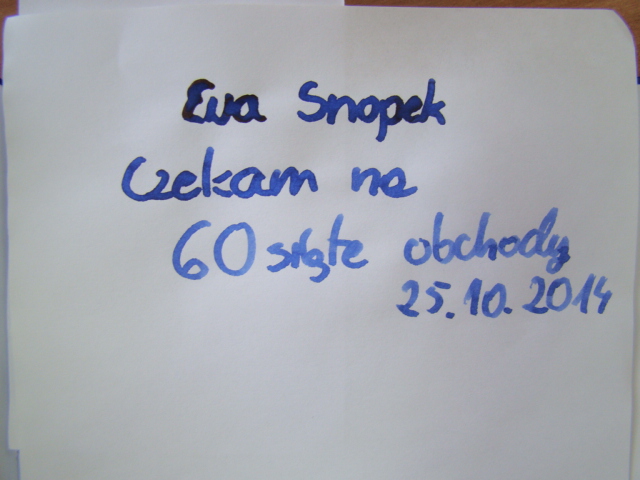 Eva Snopek
Czekam na
60 siąte obchody
25.10.2014